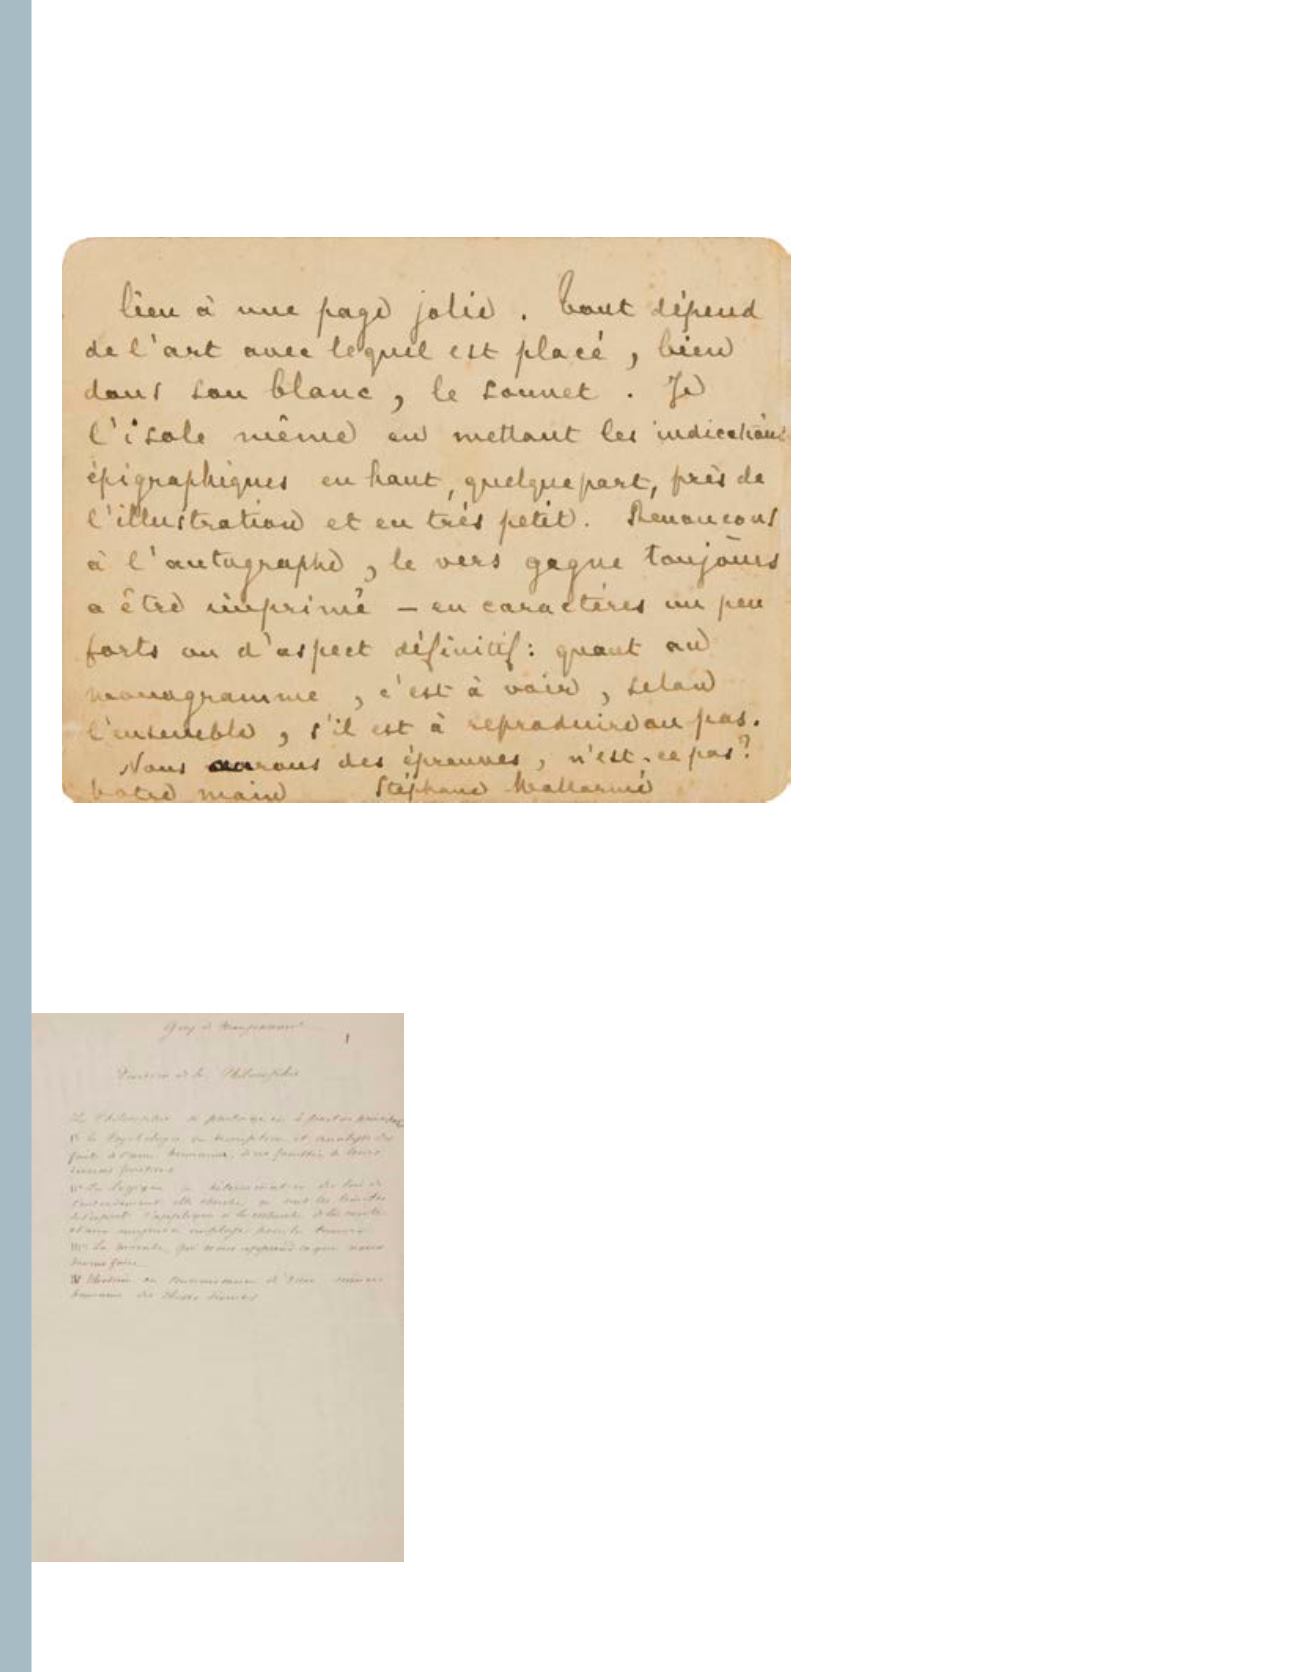 lieu à une page jolie. Tout dépend
de l'art avec lequel est placé, bien
dans son blanc, le sonnet. Je
l'isole même en mettant les indications
épigraphiques en haut, quelque part, près de
l'illustration et en très petit. Renonçons
à l'autographe, le vers gagne toujours
a être imprimé — en caractères un peu
forts ou d'aspect définitif: quant au
monogramme, c'est à voir, selon
l'ensemble, s'il est à reproduire ou pas.
Nous aurons des épreuves, n'est-ce pas?
Votre main Stéphane Mallarmé
Guy de Maupassant
1
Division de la Philosophie
La Philosophie se partage en 4 parties
I° la Psychologie ou description et analyse des
faits de l'âme humaine, de ses facultés de leurs
II° La Logique ou détermination des lois de
l'entendement elle cherche
de l'esprit s'applique à la recherche de la vérité
III° La morale, qui nous apprend ce que nous
devons faire
IV
humaine